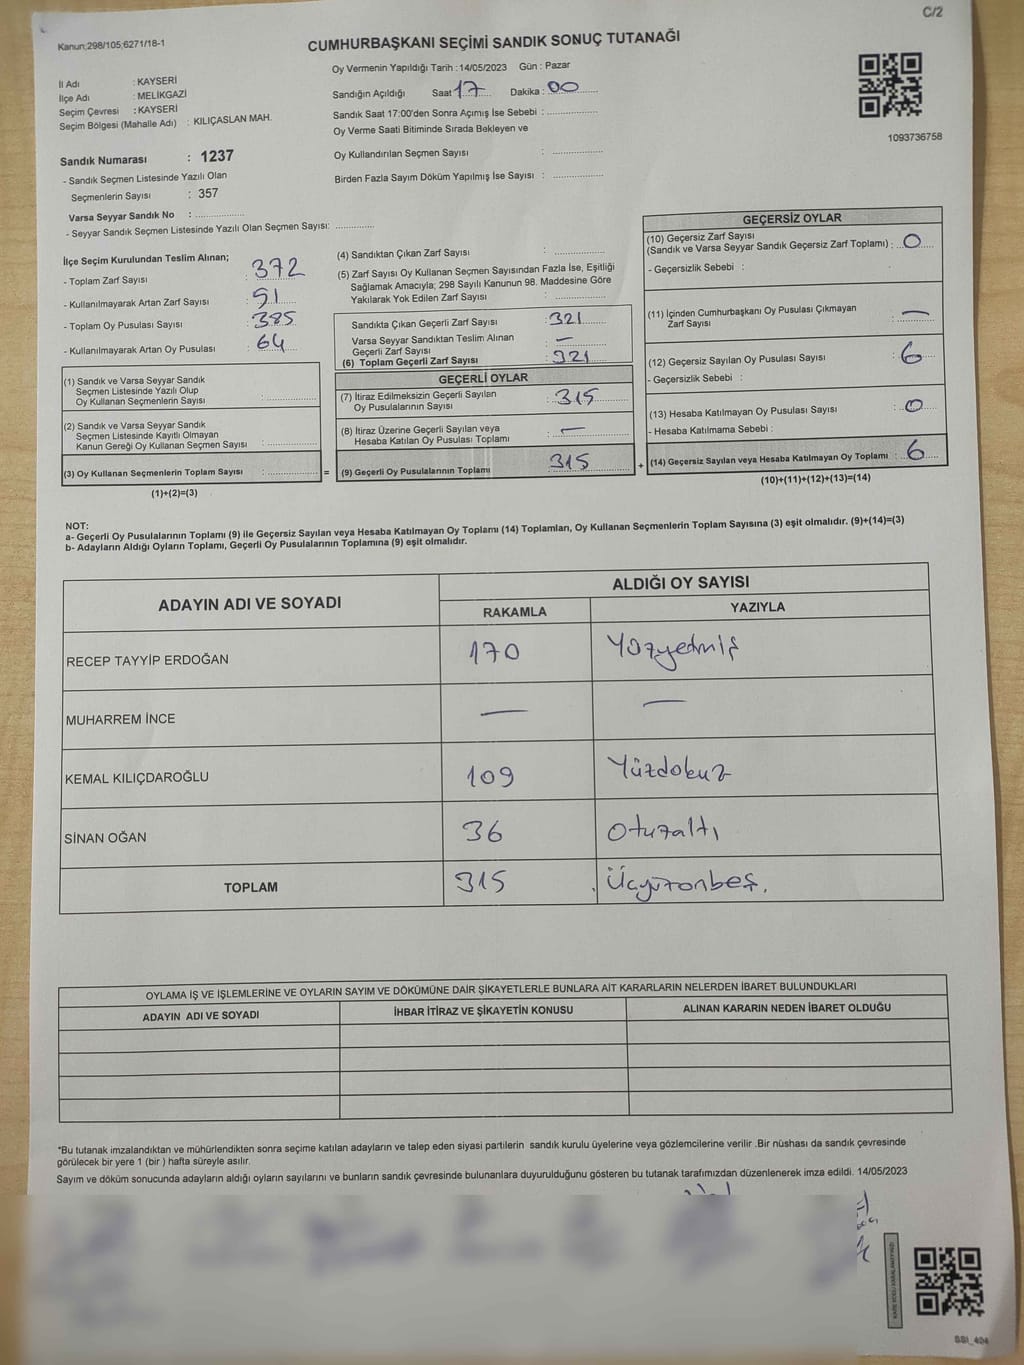 C/2
Kanun;298/105;6271/18-1
CUMHURBAŞKANI SEÇİMİ SANDIK SONUÇ TUTANAĞI
İl Adı : KAYSERİ
İlçe Adı : MELİKGAZİ
Seçim Çevresi : KAYSERİ
Seçim Bölgesi (Mahalle Adı) : KILIÇASLAN MAH.
Oy Vermenin Yapıldığı Tarih : 14/05/2023 Gün : Pazar
Sandığın Açıldığı Saat 17 Dakika : 00
Sandık Saat 17:00'den Sonra Açımış İse Sebebi :
Oy Verme Saati Bitiminde Sırada Bekleyen ve
Oy Kullandırılan Seçmen Sayısı :
Birden Fazla Sayım Döküm Yapılmış İse Sayısı :
1093736758
Sandık Numarası : 1237
- Sandık Seçmen Listesinde Yazılı Olan
Seçmenlerin Sayısı : 357
Varsa Seyyar Sandık No :
- Seyyar Sandık Seçmen Listesinde Yazılı Olan Seçmen Sayısı:
İlçe Seçim Kurulundan Teslim Alınan;
- Toplam Zarf Sayısı : 372
- Kullanılmayarak Artan Zarf Sayısı : 51
- Toplam Oy Pusulası Sayısı : 385
- Kullanılmayarak Artan Oy Pusulası : 64
(1) Sandık ve Varsa Seyyar Sandık
Seçmen Listesinde Yazılı Olup
Oy Kullanan Seçmenlerin Sayısı :
(2) Sandık ve Varsa Seyyar Sandık
Seçmen Listesinde Kayıtlı Olmayan
Kanun Gereği Oy Kullanan Seçmen Sayısı :
(3) Oy Kullanan Seçmenlerin Toplam Sayısı : =
(1)+(2)=(3)
(4) Sandıktan Çıkan Zarf Sayısı :
(5) Zarf Sayısı Oy Kullanan Seçmen Sayısından Fazla İse, Eşitliği
Sağlamak Amacıyla; 298 Sayılı Kanunun 98. Maddesine Göre
Yakılarak Yok Edilen Zarf Sayısı :
Sandıkta Çıkan Geçerli Zarf Sayısı : 321
Varsa Seyyar Sandıktan Teslim Alınan
Geçerli Zarf Sayısı : —
(6) Toplam Geçerli Zarf Sayısı : 321
GEÇERLİ OYLAR
(7) İtiraz Edilmeksizin Geçerli Sayılan
Oy Pusulalarının Sayısı : 315
(8) İtiraz Üzerine Geçerli Sayılan veya
Hesaba Katılan Oy Pusulası Toplamı : —
(9) Geçerli Oy Pusulalarının Toplamı : 315 +
GEÇERSİZ OYLAR
(10) Geçersiz Zarf Sayısı
(Sandık ve Varsa Seyyar Sandık Geçersiz Zarf Toplamı) : 0
- Geçersizlik Sebebi :
(11) İçinden Cumhurbaşkanı Oy Pusulası Çıkmayan
Zarf Sayısı : —
(12) Geçersiz Sayılan Oy Pusulası Sayısı : 6
- Geçersizlik Sebebi :
(13) Hesaba Katılmayan Oy Pusulası Sayısı : 0
- Hesaba Katılmama Sebebi :
(14) Geçersiz Sayılan veya Hesaba Katılmayan Oy Toplamı : 6
(10)+(11)+(12)+(13)=(14)
NOT:
a- Geçerli Oy Pusulalarının Toplamı (9) ile Geçersiz Sayılan veya Hesaba Katılmayan Oy Toplamı (14) Toplamları, Oy Kullanan Seçmenlerin Toplam Sayısına (3) eşit olmalıdır. (9)+(14)=(3)
b- Adayların Aldığı Oyların Toplamı, Geçerli Oy Pusulalarının Toplamına (9) eşit olmalıdır.
ADAYIN ADI VE SOYADI
ALDIĞI OY SAYISI
RAKAMLA YAZIYLA
RECEP TAYYİP ERDOĞAN 170 Yüzyetmiş
MUHARREM İNCE — —
KEMAL KILIÇDAROĞLU 109 Yüzdokuz
SİNAN OĞAN 36 Otuzaltı
TOPLAM 315 Üçyüzonbeş.
OYLAMA İŞ VE İŞLEMLERİNE VE OYLARIN SAYIM VE DÖKÜMÜNE DAİR ŞİKAYETLERLE BUNLARA AİT KARARLARIN NELERDEN İBARET BULUNDUKLARI
ADAYIN ADI VE SOYADI İHBAR İTİRAZ VE ŞİKAYETİN KONUSU ALINAN KARARIN NEDEN İBARET OLDUĞU
*Bu tutanak imzalandıktan ve mühürlendikten sonra seçime katılan adayların ve talep eden siyasi partilerin sandık kurulu üyelerine veya gözlemcilerine verilir .Bir nüshası da sandık çevresinde
görülecek bir yere 1 (bir ) hafta süreyle asılır.
Sayım ve döküm sonucunda adayların aldığı oyların sayılarını ve bunların sandık çevresinde bulunanlara duyurulduğunu gösteren bu tutanak tarafımızdan düzenlenerek imza edildi. 14/05/2023
SSI_404